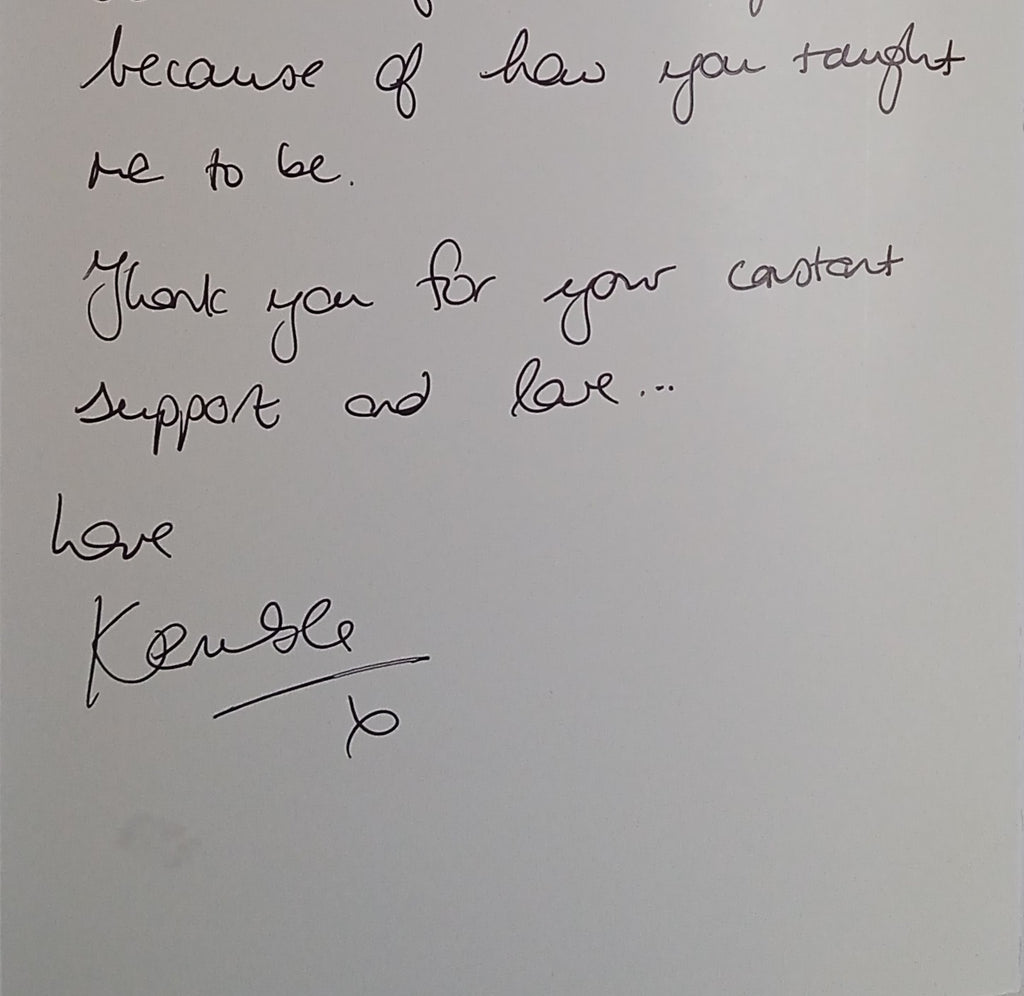 because of how you taught
me to be.
Thank you for your constant
support and love...
Love
x